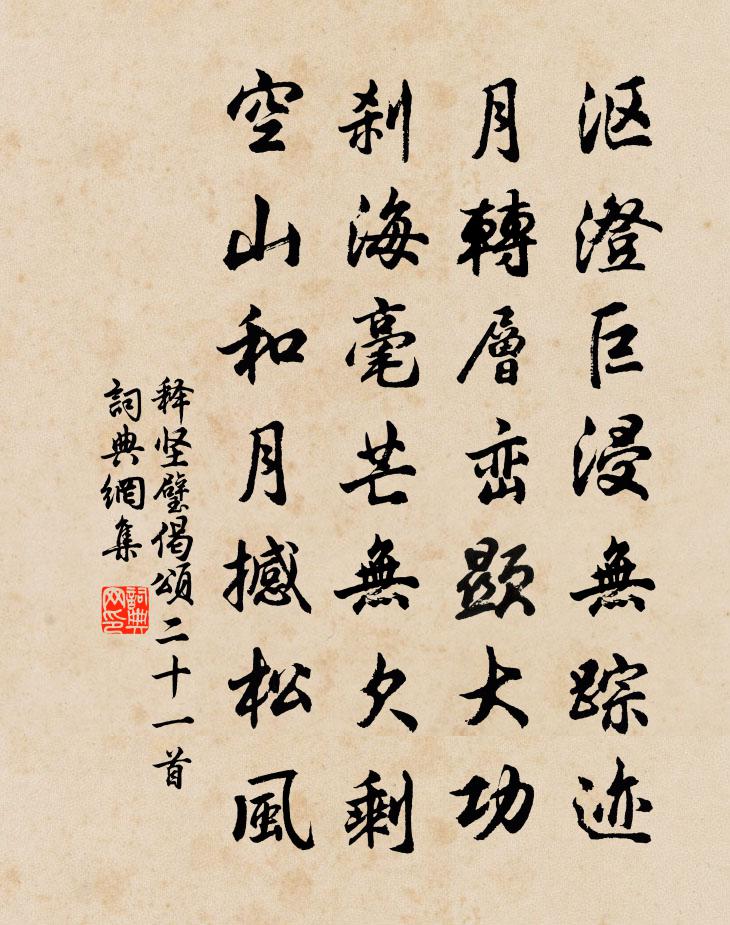 沤澄巨浸無踪迹
月轉層峦顯大功
刹海毫芒無欠剩
空山和月撼松風
释坚璧偈頌二十一首
詞典網集
詞典网印